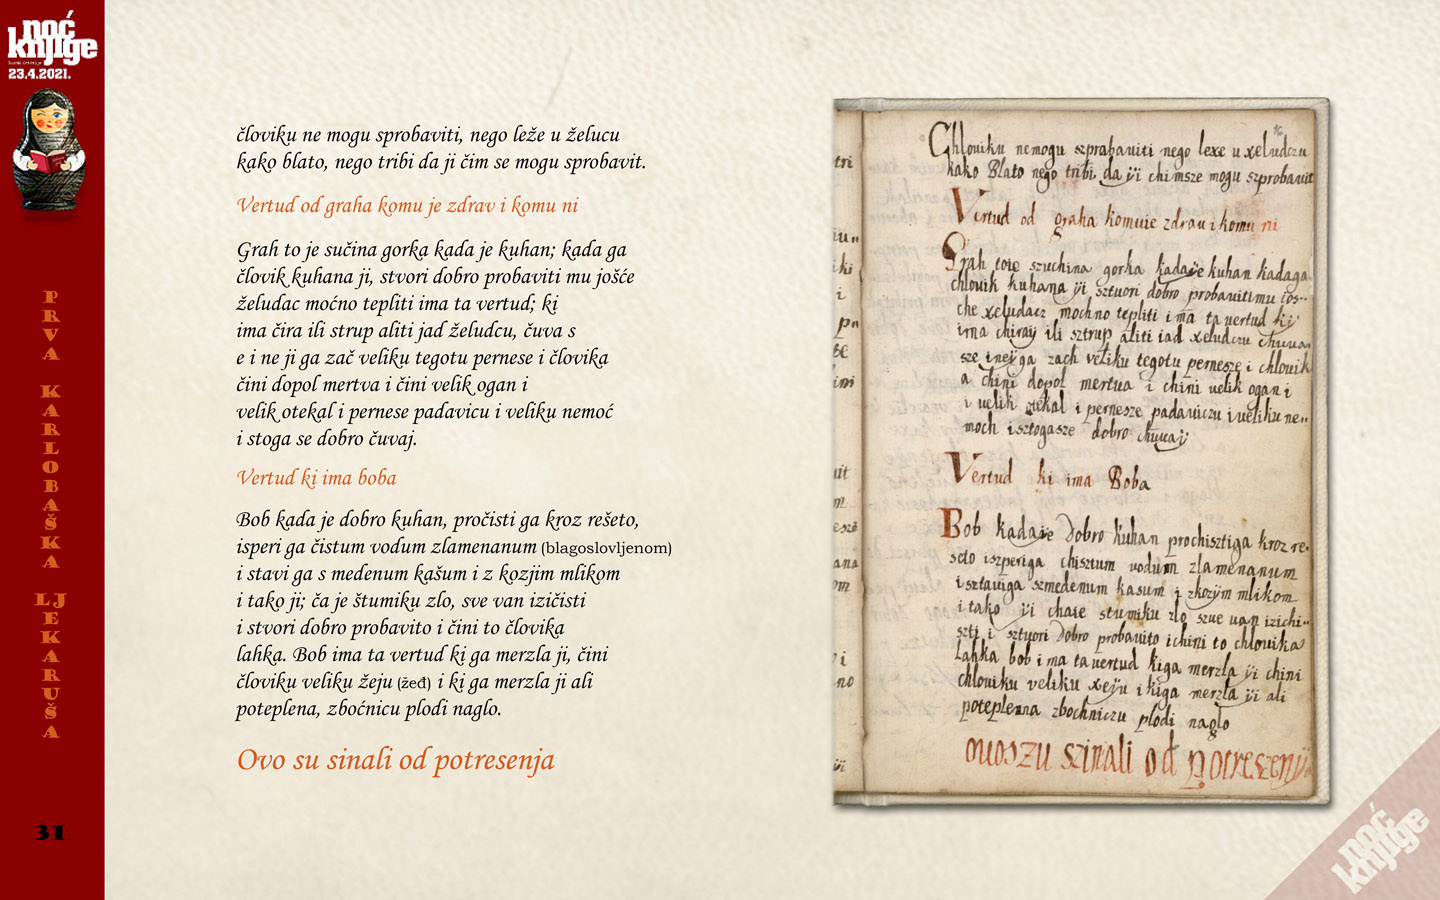 noć
knjige
23.4.2021.
PRVA KARLOBAŠKA LJEKARUŠA
31
človiku ne mogu sprobaviti, nego leže u želucu
kako blato, nego tribi da ji čim se mogu sprobavit.
Vertud od graha komu je zdrav i komu ni
Grah to je sučina gorka kada je kuhan; kada ga
človik kuhana ji, stvori dobro probaviti mu jošće
želudac moćno tepliti ima ta vertud; ki
ima čira ili strup aliti jad želudcu, čuva s
e i ne ji ga zač veliku tegotu pernese i človika
čini dopol mertva i čini velik ogan i
velik otekal i pernese padavicu i veliku nemoć
i stoga se dobro čuvaj.
Vertud ki ima boba
Bob kada je dobro kuhan, pročisti ga kroz rešeto,
isperi ga čistum vodum zlamenanum (blagoslovljenom)
i stavi ga s medenum kašum i z kozjim mlikom
i tako ji; ča je štumiku zlo, sve van izičisti
i stvori dobro probavito i čini to človika
lahka. Bob ima ta vertud ki ga merzla ji, čini
človiku veliku žeju (žeđ) i ki ga merzla ji ali
poteplena, zboćnicu plodi naglo.
Ovo su sinali od potresenja
Chloviku nemogu szprabaviti nego lexe u xeludczu
kako Blato nego tribi da ÿi chimsze mogu szprobavit
Vertud od graha komuie zdrav i komu ni
Grah toie szuchina gorka kadaÿe kuhan kadaga
chlovik kuhana ÿi sztuori dobro probavitimu ios--
che xeludacz mochno tepliti ima ta vertud ki
ima chiraÿ ili sztrup aliti iad xeludczu chuvaÿ
sze ineÿga zach veliku tegotu pernesze i chlovik
a chini dopol mertua i chini uelik ogan i
i uelik otekal i pernesze padaviczu i veliku ne--
moch isztogasze dobro chuvaÿ
Vertud ki ima Boba
Bob kadaie dobro kuhan prochisztiga kroz re-
seto iszperiga chisztum vodum zlamenanum
isztaviga szmedenum kasum i zkozÿm mlikom
i tako ÿi chaie stumiku zlo szue uan izichi--
szti i sztuori dobro probavito ichini to chlovika
Lahka bob ima tavertud kiga merzla ÿi chini
chloviku veliku xeÿu i kiga merzla ÿi ali
poteplena zbochniczu plodi naglo
ouoszu szinali od potreszenÿa
noć
knjige